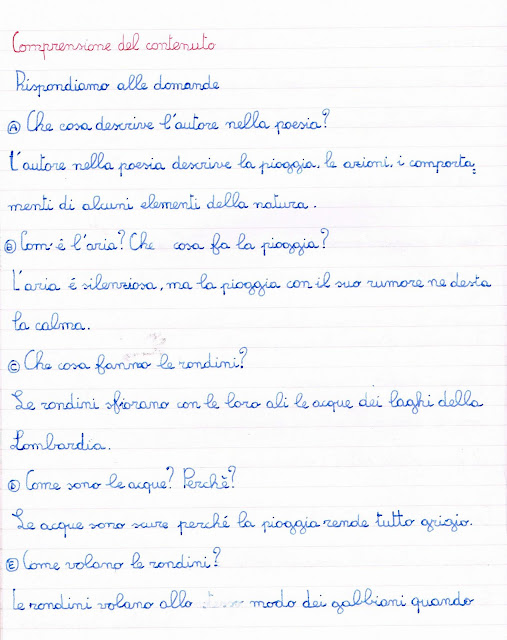 Comprensione del contenuto
Rispondiamo alle domande
Ⓐ Che cosa descrive l'autore nella poesia?
L'autore nella poesia descrive la pioggia, le azioni, i comporta=
menti di alcuni elementi della natura.
Ⓑ Com'é l'aria? Che cosa fa la pioggia?
L'aria é silenziosa, ma la pioggia con il suo rumore ne desta
la calma.
Ⓒ Che cosa fanno le rondini?
Le rondini sfiorano con le loro ali le acque dei laghi della
Lombardia.
Ⓓ Come sono le acque? Perchè?
Le acque sono scure perché la pioggia rende tutto grigio.
Ⓔ Come volano le rondini?
Le rondini volano allo stesso modo dei gabbiani quando